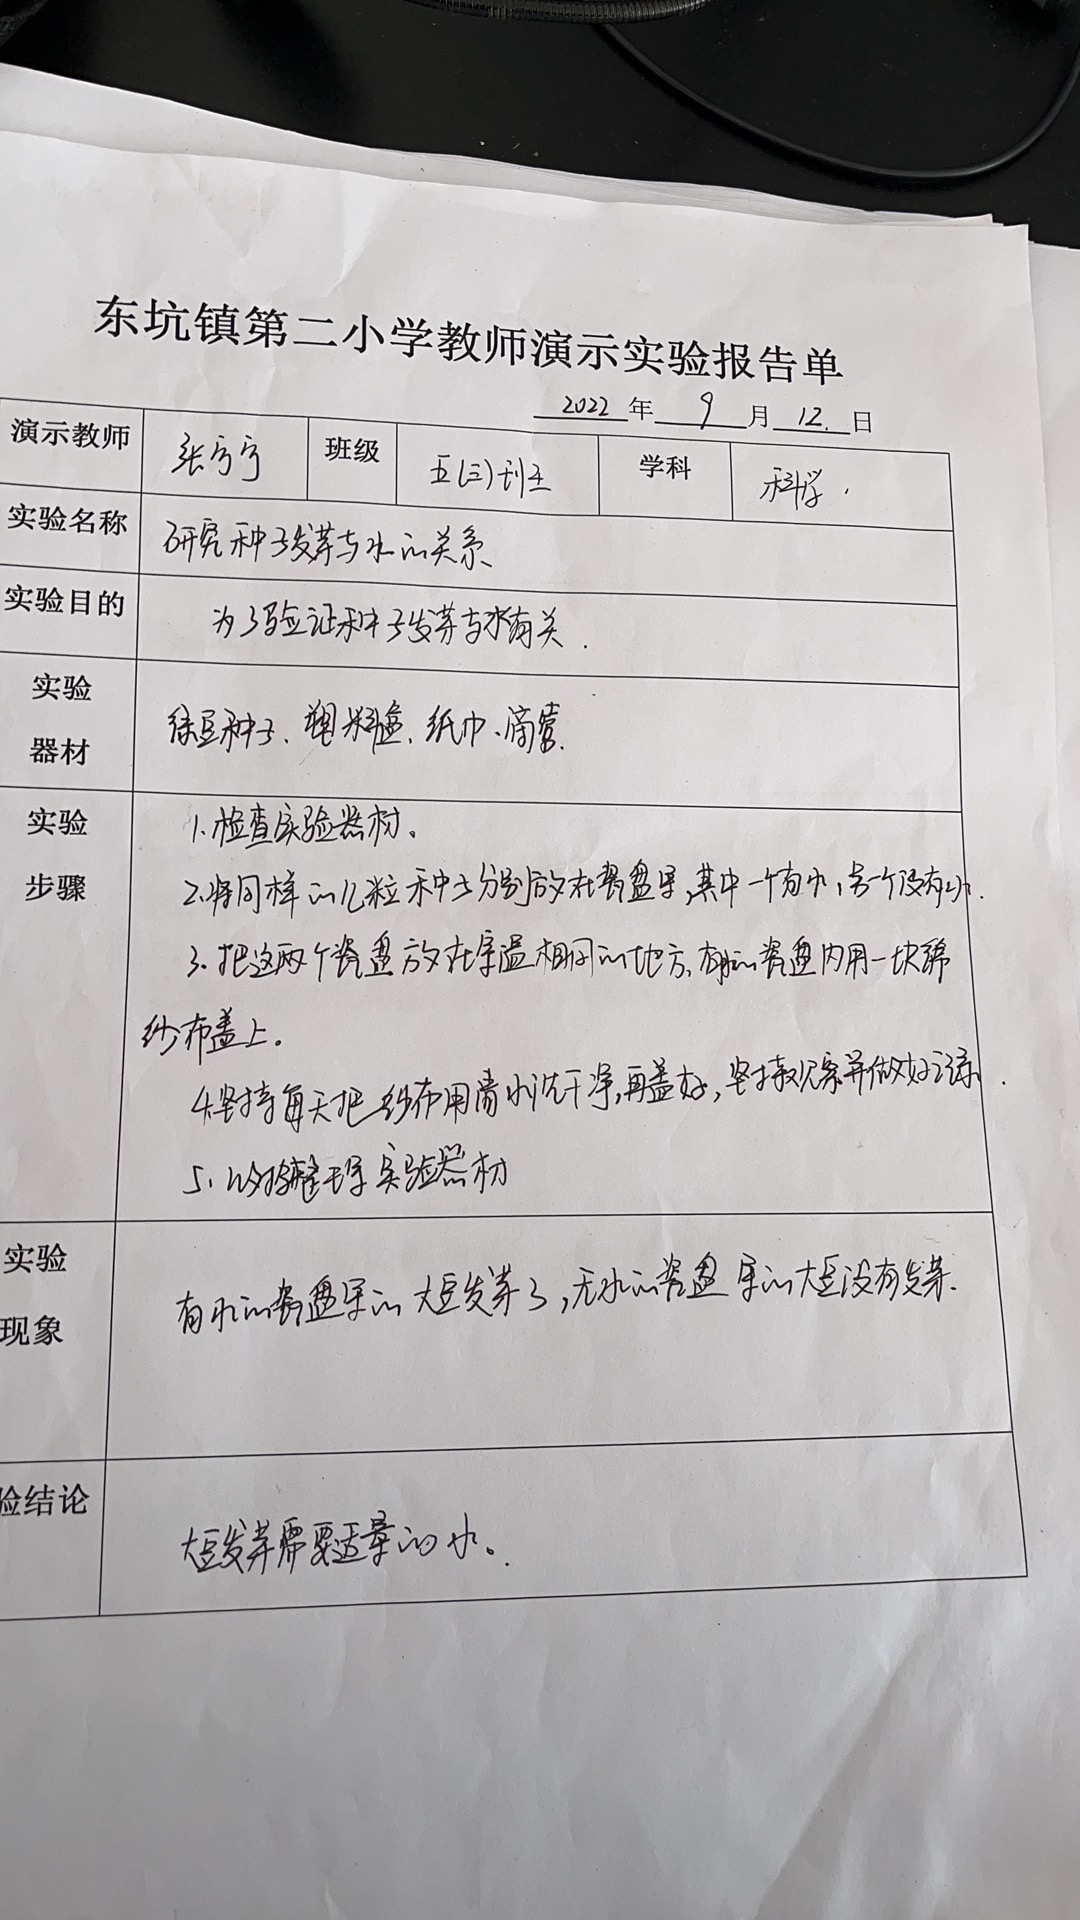 东坑镇第二小学教师演示实验报告单
2022 年 9 月 12. 日
演示教师 张宁宁 班级 五(三)班 学科 科学.
实验名称 研究种子发芽与水的关系
实验目的 为了验证种子发芽与水有关.
实验 器材 绿豆种子、塑料盒、纸巾、滴管.
实验 步骤 1.检查实验器材。
2.将同样的几粒种子分别放在瓷盘里,其中一个有水,另一个没有水.
3.把这两个瓷盘放在室温相同的地方,有水的瓷盘内用一块绵
纱布盖上。
4.坚持每天把纱布用清水洗干净,再盖好,坚持观察并做好记录.
5.整理实验器材
实验 现象 有水的瓷盘里的大豆发芽了,无水的瓷盘里的大豆没有发芽.
验结论 大豆发芽需要适量的水。